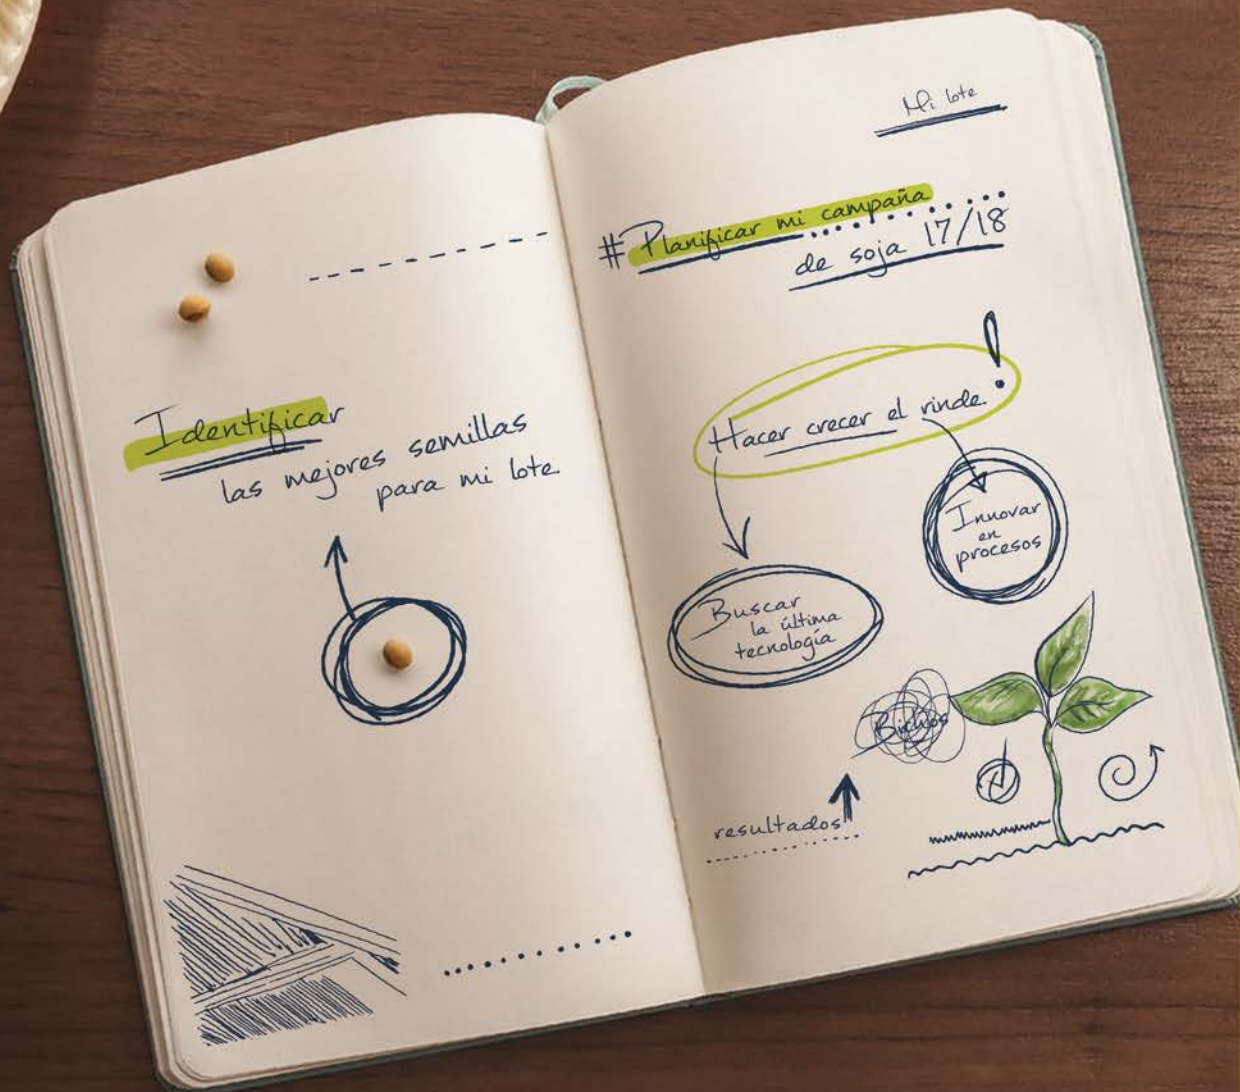 Identificar
las mejores semillas
para mi lote
Mi lote
# Planificar mi campaña
de soja 17/18
Hacer crecer el rinde!
Innovar
en
procesos
Buscar
la última
tecnología
Bichos
resultados